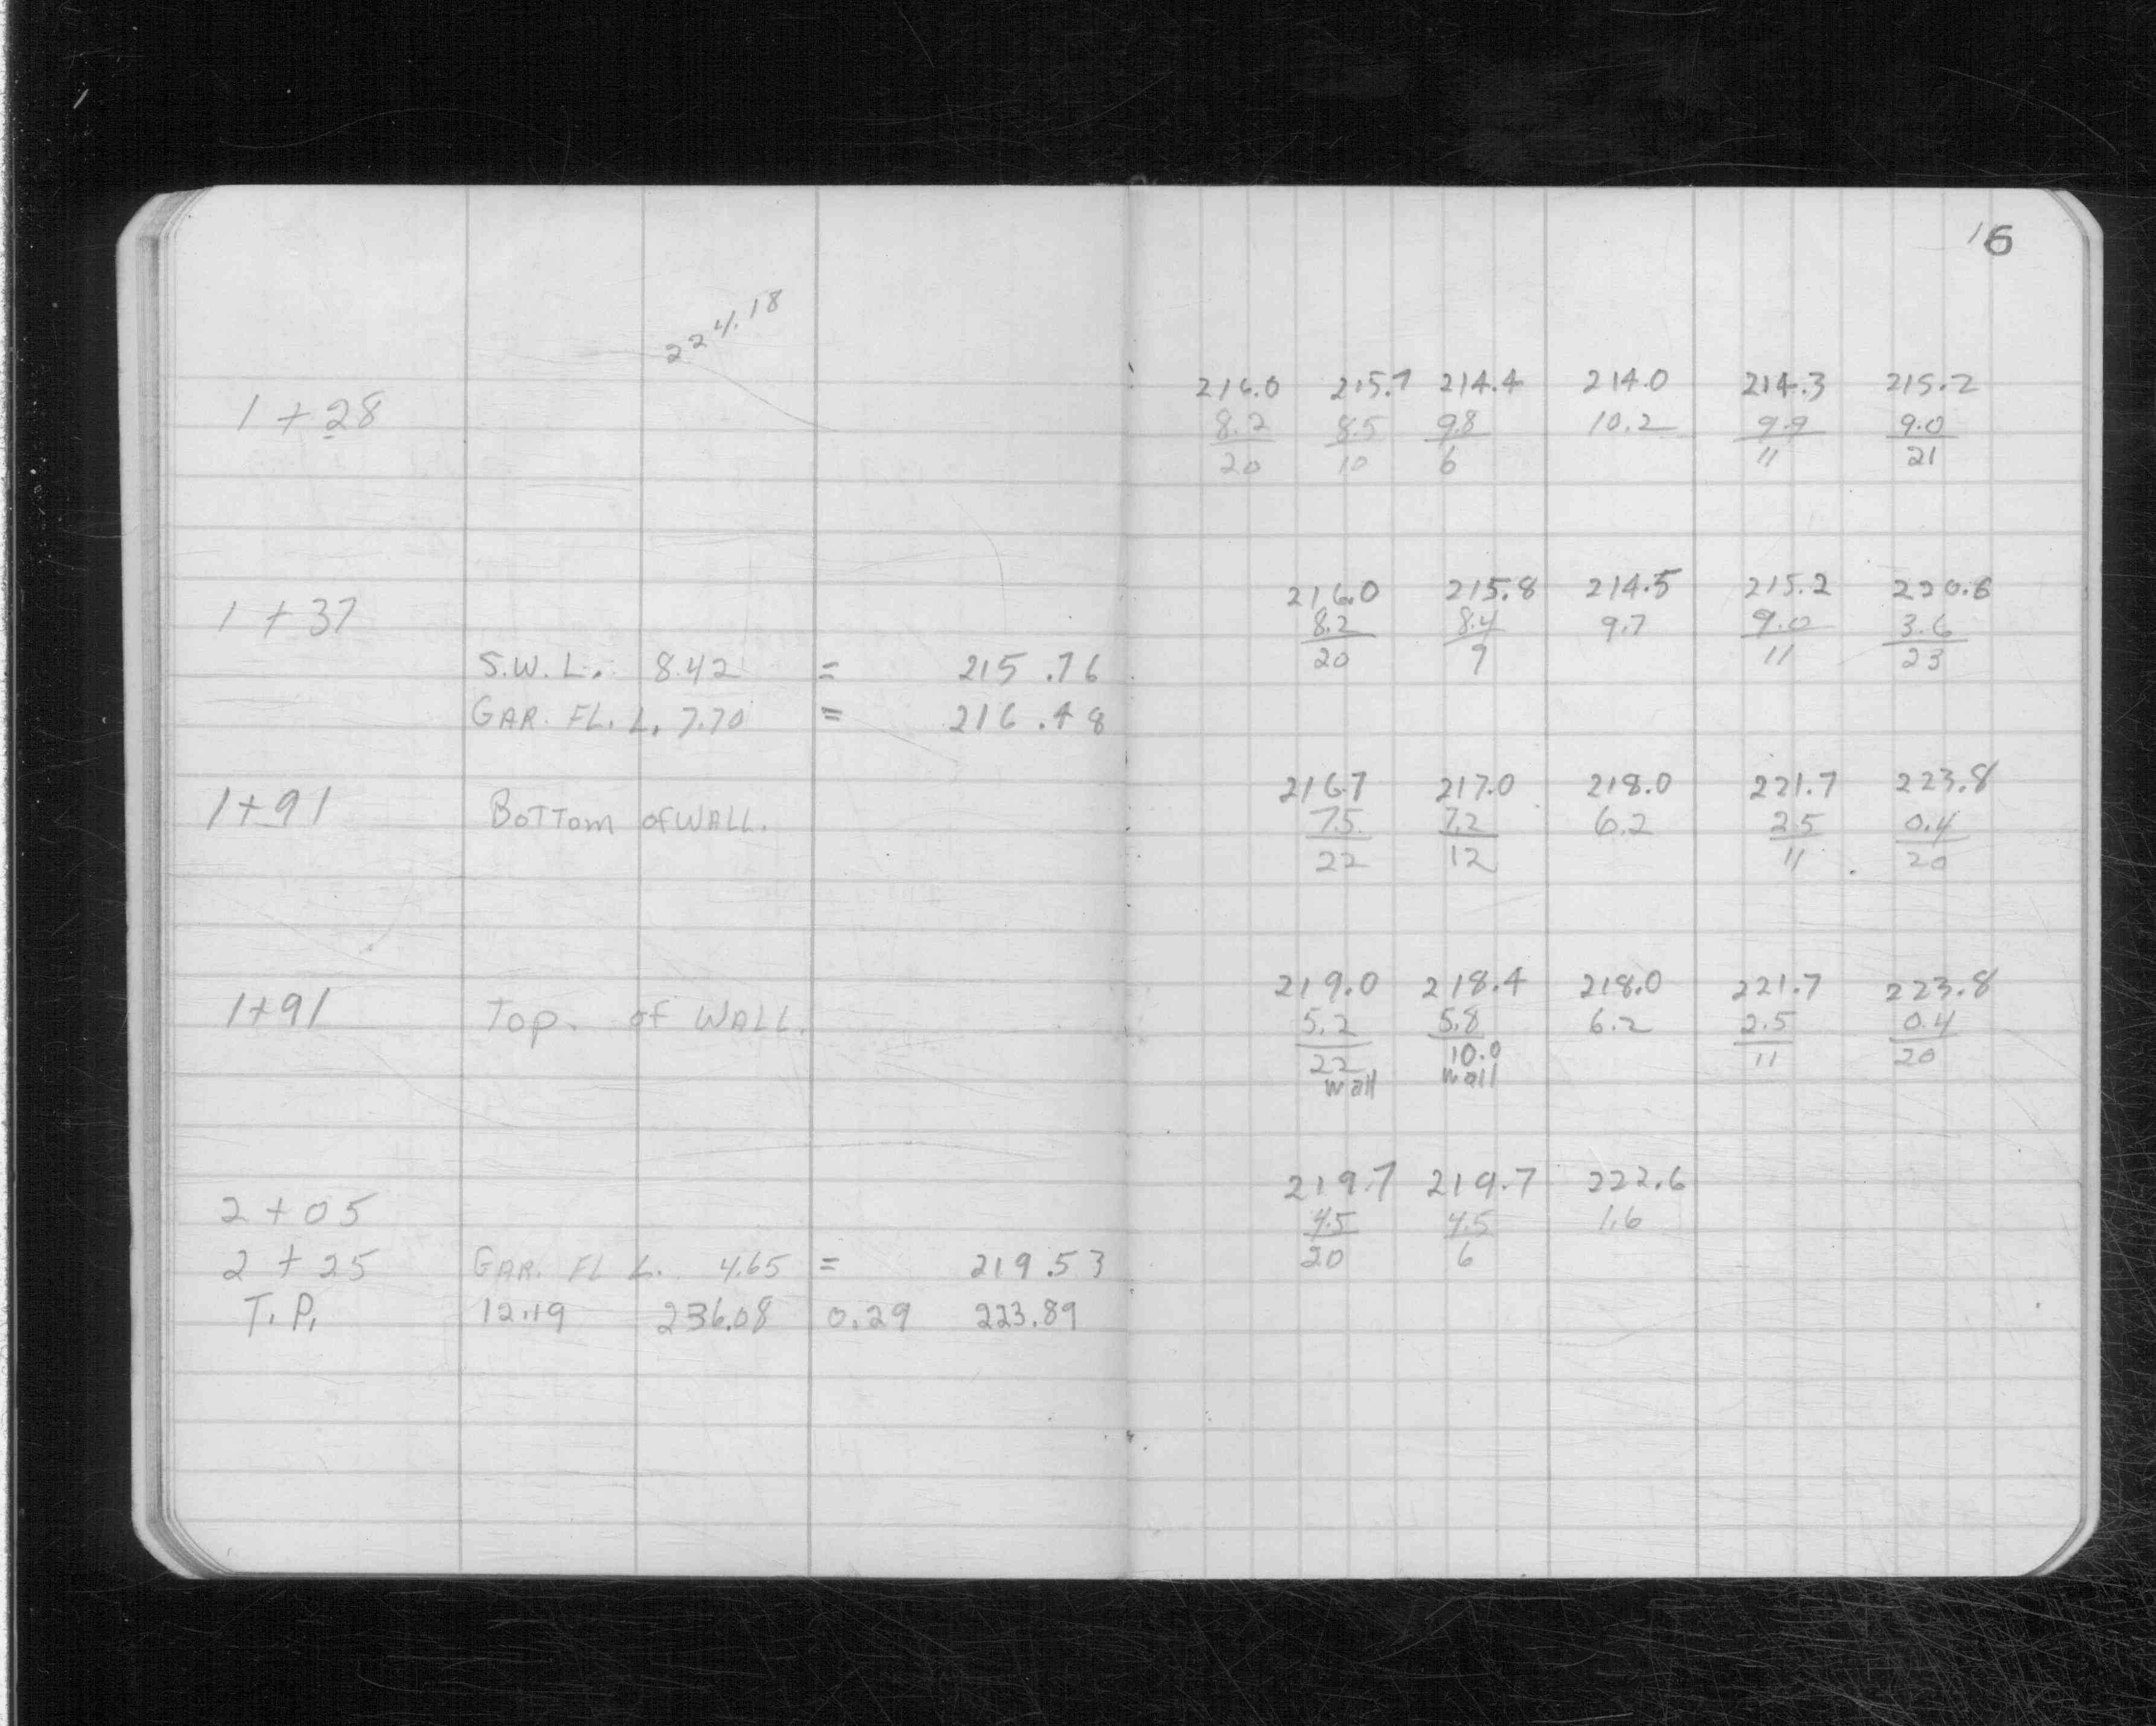 16
224.18
216.0 215.7 214.4 214.0 214.3 215.2
1+28 8.2 8.5 9.8 10.2 9.9 9.0
20 10 6 11 21
216.0 215.8 214.5 215.2 220.6
1+37 8.2 8.4 9.7 9.0 3.6
20 9 11 23
S.W.L. 8.42 = 215.76
GAR. FL. L. 7.70 = 216.48
216.7 217.0 218.0 221.7 223.8
1+91 BOTTOM OF WALL. 7.5 7.2 6.2 2.5 0.4
22 12 11 20
219.0 218.4 218.0 221.7 223.8
1+91 TOP. OF WALL. 5.2 5.8 6.2 2.5 0.4
22 10.0 11 20
wall wall
219.7 219.7 222.6
2+05 4.5 4.5 1.6
20 6
2+25 GAR. FL L. 4.65 = 219.53
T.P. 12.19 236.08 0.29 223.89